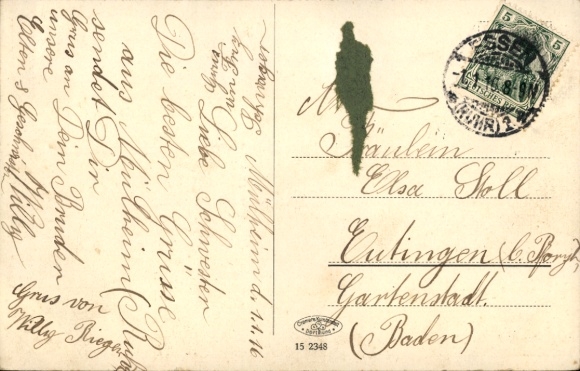 Mülheim d. 1.1.16
Liebe Schwester
Die besten Grüsse
aus Mülheim (Ruhr)
sendet Dir
Dein Bruder
Willy
Gruss an
unsere
Eltern & Geschwister
Gruss von
Willy Rieger
Fräulein
Elsa Stoll
Eutingen (b. Pforzh.
Gartenstadt.
(Baden)
ESSEN
(RUHR)
5 5
DEUTSCHES REICH
15 2348